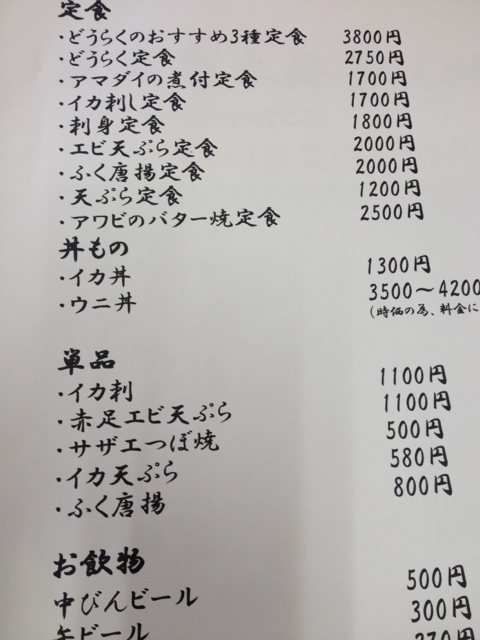 定食
・どうらくのおすすめ3種定食 3800円
・どうらく定食 2750円
・アマダイの煮付定食 1700円
・イカ刺し定食 1700円
・刺身定食 1800円
・エビ天ぷら定食 2000円
・ふく唐揚定食 2000円
・天ぷら定食 1200円
・アワビのバター焼定食 2500円
丼もの
・イカ丼 1300円
・ウニ丼 3500〜4200
(時価の為、料金に
単品
・イカ刺 1100円
・赤足エビ天ぷら 1100円
・サザエつぼ焼 500円
・イカ天ぷら 580円
・ふく唐揚 800円
お飲物
中びんビール 500円
缶ビール 300円